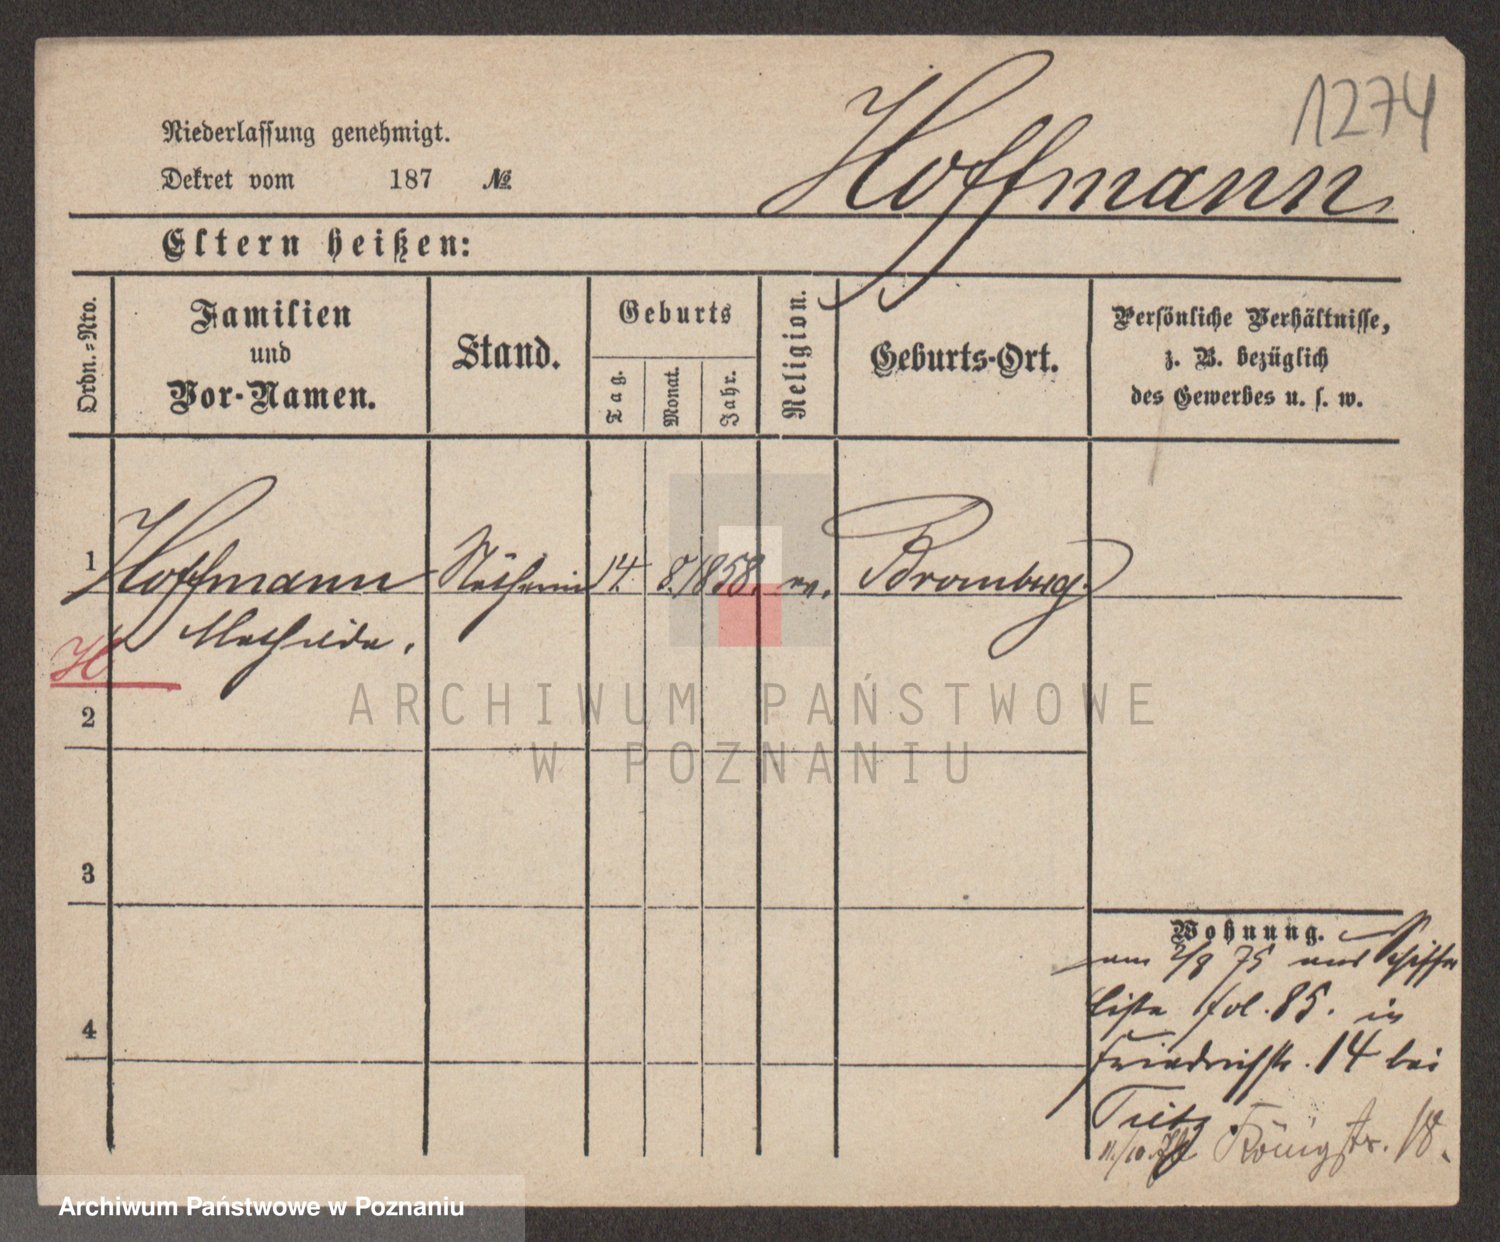 1274
Hoffmann
Niederlassung genehmigt.
Dekret vom 187 №
Eltern heißen:
Ordn.-Nro.
Familien
und
Vor-Namen.
Stand.
Geburts
Tag.
Monat.
Jahr.
Religion.
Geburts-Ort.
Persönliche Verhältnisse,
z. B. bezüglich
des Gewerbes u. s. w.
1 Hoffmann Nätherin 14. 8. 1858. ev. Bromberg.
Mathilde.
H
2
3
4
Wohnung.
am 2/9 75 aus
liste fol. 85. in
Friedrichstr. 14 bei
Tietz.
11./10. Königstr. 18.
ARCHIWUM PAŃSTWOWE
W POZNANIU
Archiwum Państwowe w Poznaniu